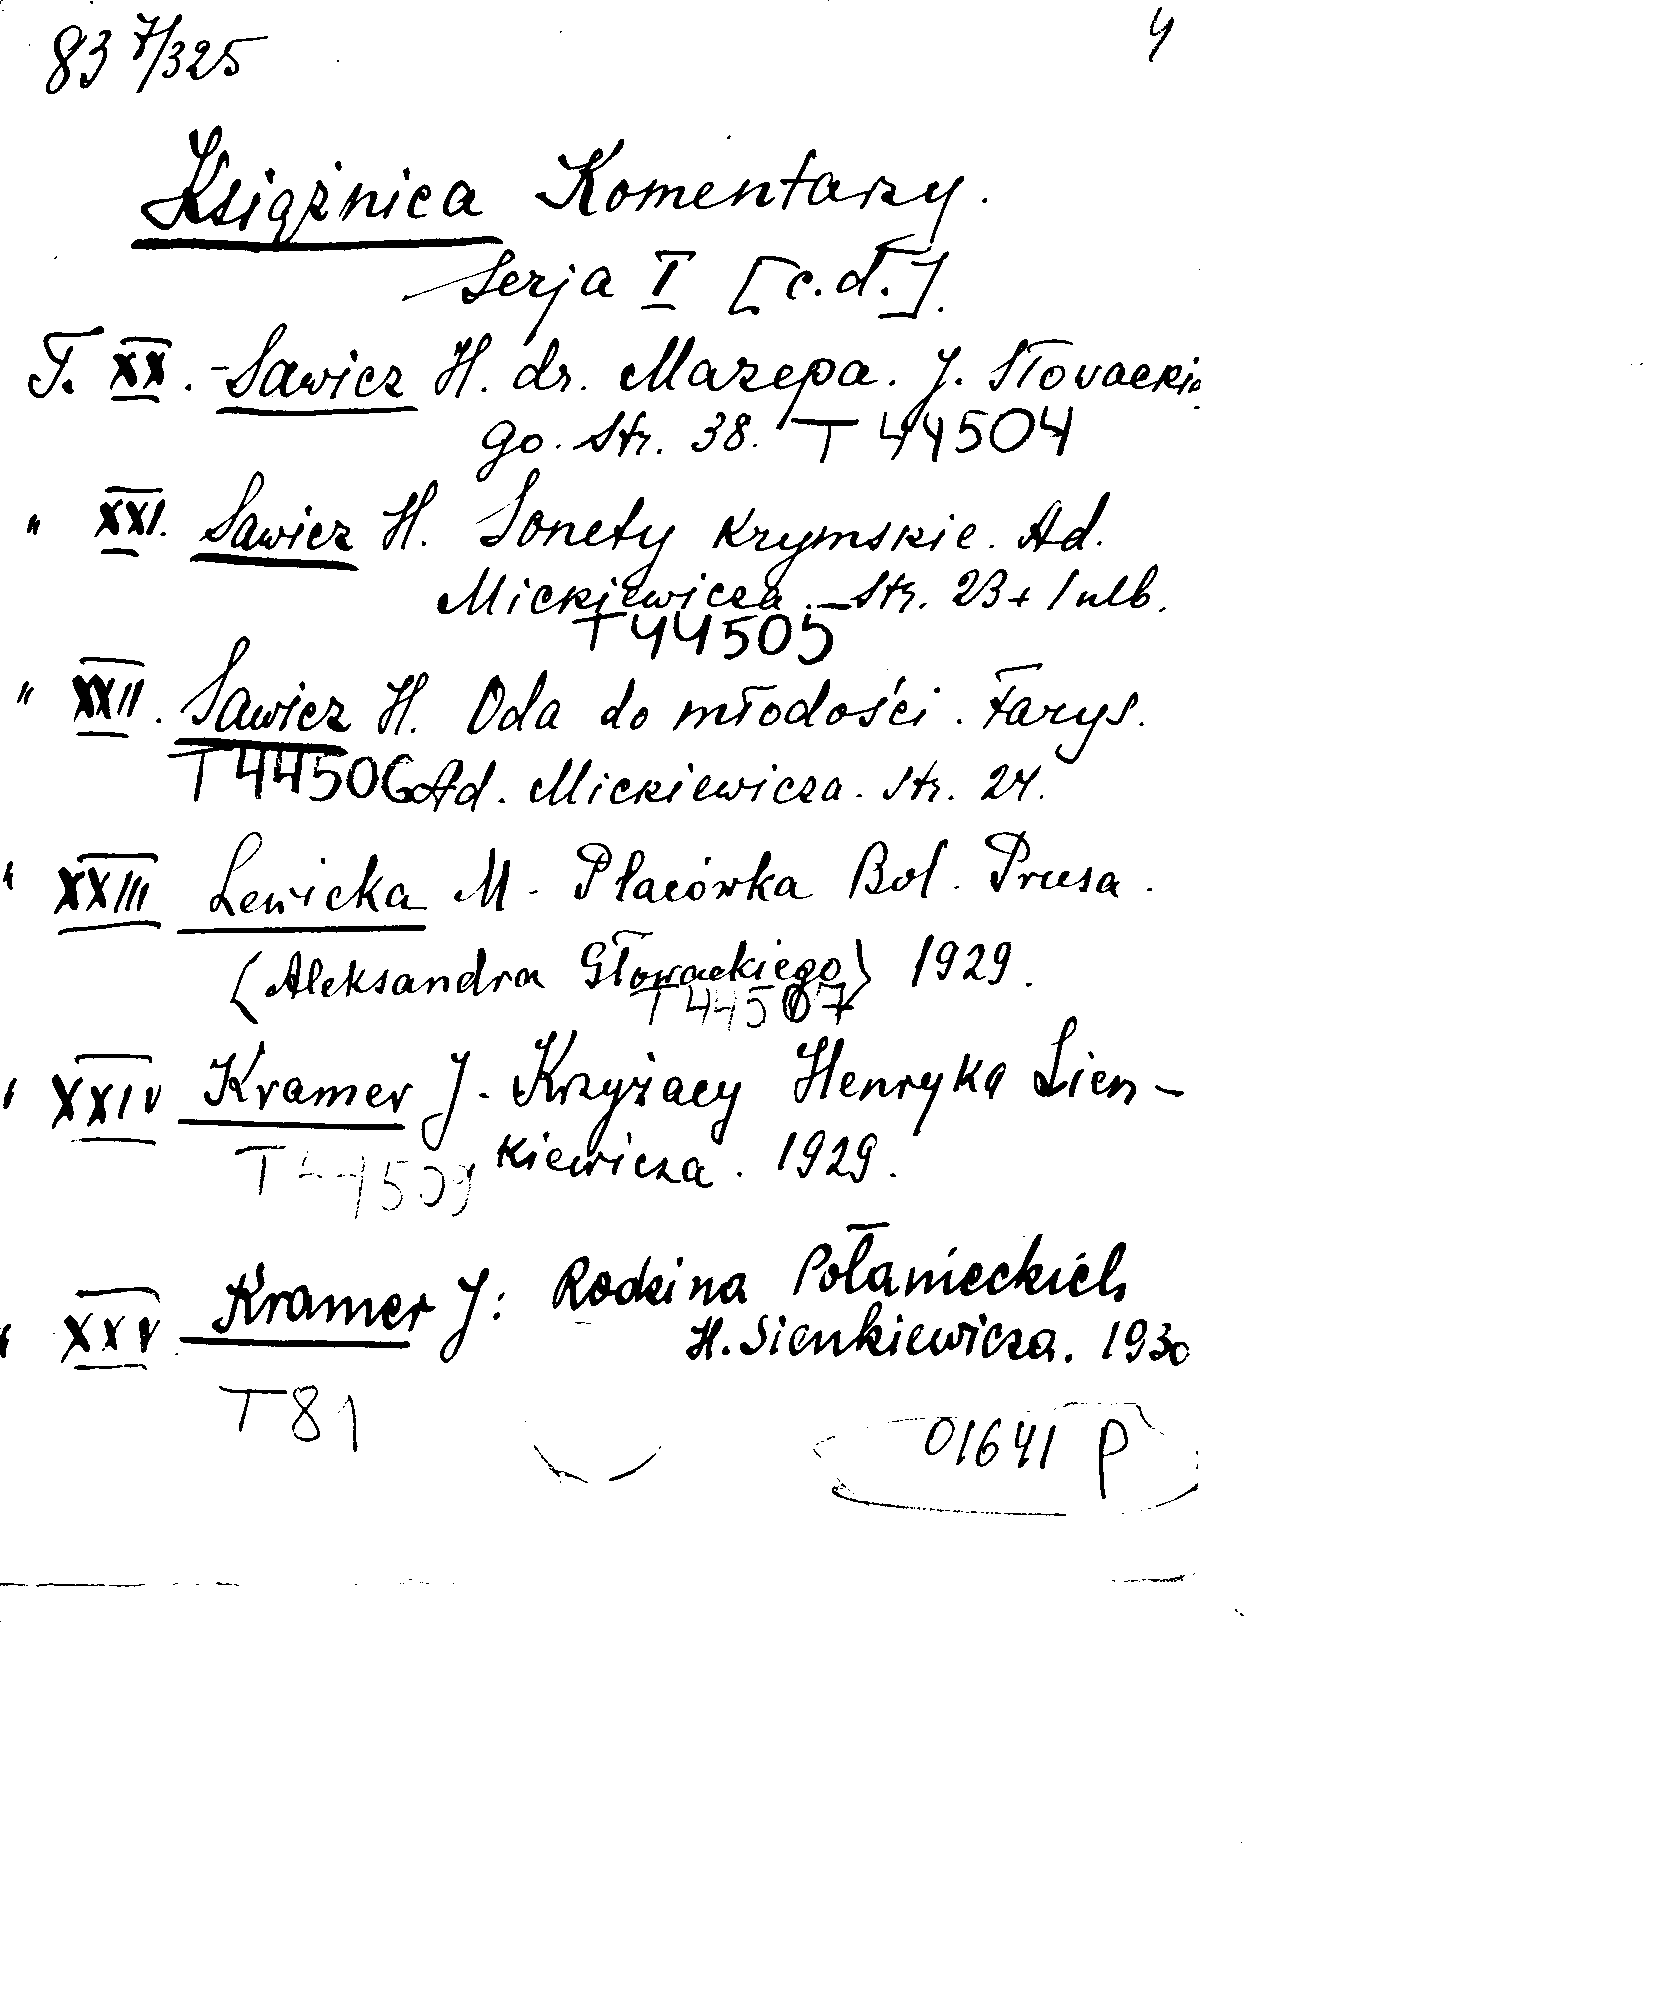 83 7/325 4
Książnica Komentarzy.
Serja I [c.d.].
T. XX. - Sawicz H. dr. Mazepa. J. Słowackie
go. Str. 38. T 44504
" XXI. Sawicz H. Sonety Krymskie. Ad.
Mickiewicza. - Str. 23 + 1 nlb.
T 44505
" XXII. Sawicz H. Oda do młodości. Farys.
T 44506 Ad. Mickiewicza. Str. 24.
" XXIII Lewicka M. Placówka Bol. Prusa.
(Aleksandra Głowackiego) 1929.
T 44507
" XXIV Kramer J. Krzyżacy Henryka Sien-
T 44509 kiewicza. 1929.
" XXV Kramer J: Rodzina Połanieckich
H. Sienkiewicza. 1930
T 81
01641 P